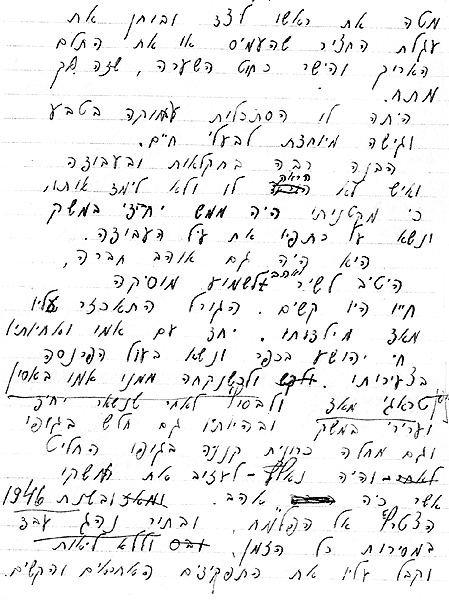 מטה את ראשו לצד ובוחן את
עגלת החציר שהעמיס או את התלם
הארוך והישר כחוט השערה, שזה
מתח.
היתה לו הסתכלות עמוקה בטבע
וגישה מיוחדת לבעלי חיים.
הבנה רבה בחקלאות ובעבודה
ואיש לא הראה לו ולא לימד אותו,
כי מקטנותו היה ממש יחידי במשק
ונשא על כתפיו את עול העבודה.
הוא היה גם אוהב חברה,
היטיב לשיר ואהב לשמוע מוסיקה
חייו היו קשים. הגורל התאכזר עליו
מאד מילדותו. יחד עם אמו ואחיותיו
חי יהושע בכפר ונשא בעול הפרנסה
בצעירותו. ולכשנלקחה ממנו אמו באסון
טראגי מאד ולבסוף לאחר שנשאר יחיד
וערירי במשק ובהיותו גם חלש בגופו
וגם מחלה כרונית קננה בגופו החליט
והיה נאלץ לעזוב את משקו
אשר כ"כ אהב. ובשנת 1946
הצטרף אל הפלמ"ח. ובתור נהג עבד
במסירות כל הזמן, וללא ליאות
וקבל עליו את התפקידים האחראים והקשים.